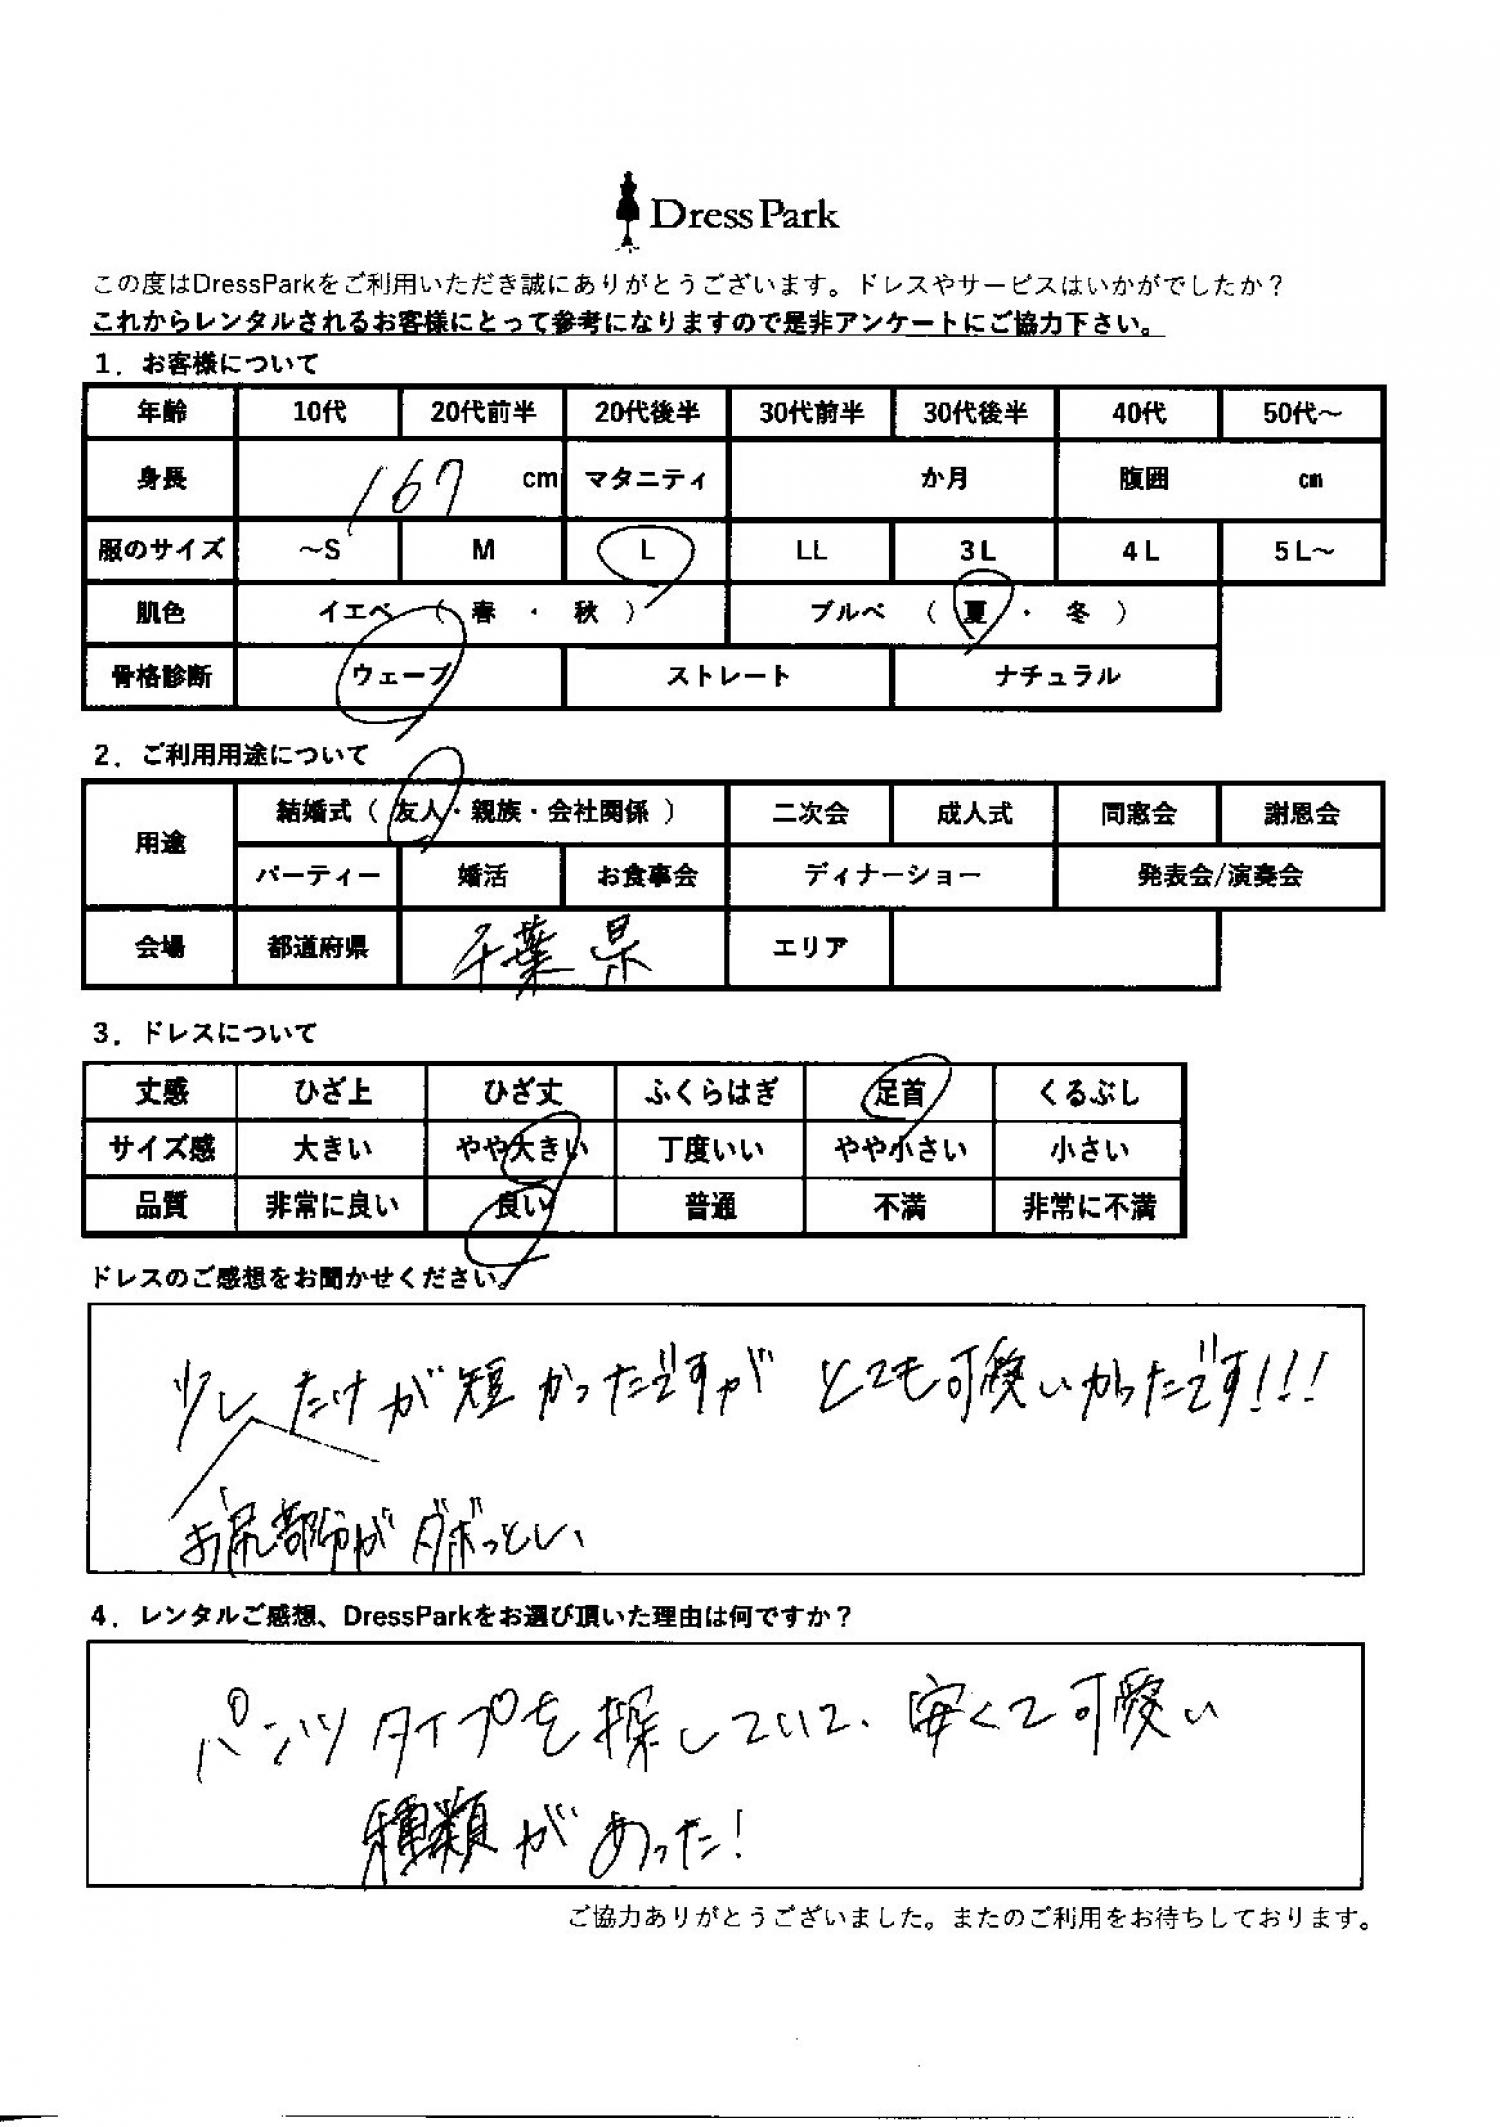 DressPark
この度はDressParkをご利用いただき誠にありがとうございます。ドレスやサービスはいかがでしたか？
これからレンタルされるお客様にとって参考になりますので是非アンケートにご協力下さい。
1．お客様について
年齢 10代 20代前半 20代後半 30代前半 30代後半 40代 50代～
身長 167 cm マタニティ か月 腹囲 cm
服のサイズ ～S M L LL 3L 4L 5L～
肌色 イエベ （ 春 ・ 秋 ） ブルベ （ 夏 ・ 冬 ）
骨格診断 ウェーブ ストレート ナチュラル
2．ご利用用途について
用途 結婚式（ 友人・親族・会社関係 ） 二次会 成人式 同窓会 謝恩会
パーティー 婚活 お食事会 ディナーショー 発表会/演奏会
会場 都道府県 千葉県 エリア
3．ドレスについて
丈感 ひざ上 ひざ丈 ふくらはぎ 足首 くるぶし
サイズ感 大きい やや大きい 丁度いい やや小さい 小さい
品質 非常に良い 良い 普通 不満 非常に不満
ドレスのご感想をお聞かせください。
少したけが短かったですが とても可愛いかったです!!!
お尻部分がダボっとしい
4．レンタルご感想、DressParkをお選び頂いた理由は何ですか？
パンツタイプを探していて、安くて可愛い
種類があった!
ご協力ありがとうございました。またのご利用をお待ちしております。